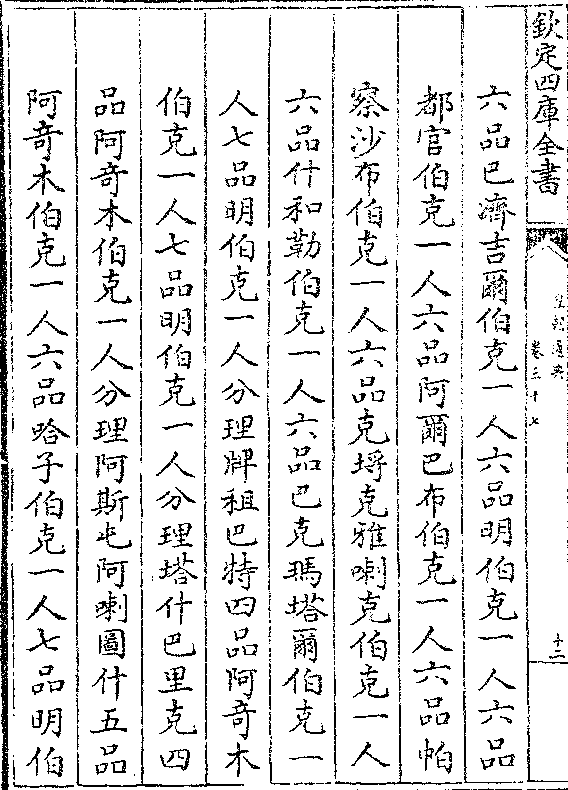 欽定四庫全書
皇朝通典
卷三十七
十二
六品巴濟吉爾伯克一人六品明伯克一人六品
都官伯克一人六品阿爾巴布伯克一人六品帕
察沙布伯克一人六品克埓克雅喇克伯克一人
六品什和勒伯克一人六品巴克瑪塔爾伯克一
人七品明伯克一人分理牌租巴特四品阿竒木
伯克一人七品明伯克一人分理塔什巴里克四
品阿竒木伯克一人分理阿斯屯阿喇圖什五品
阿竒木伯克一人六品哈子伯克一人七品明伯